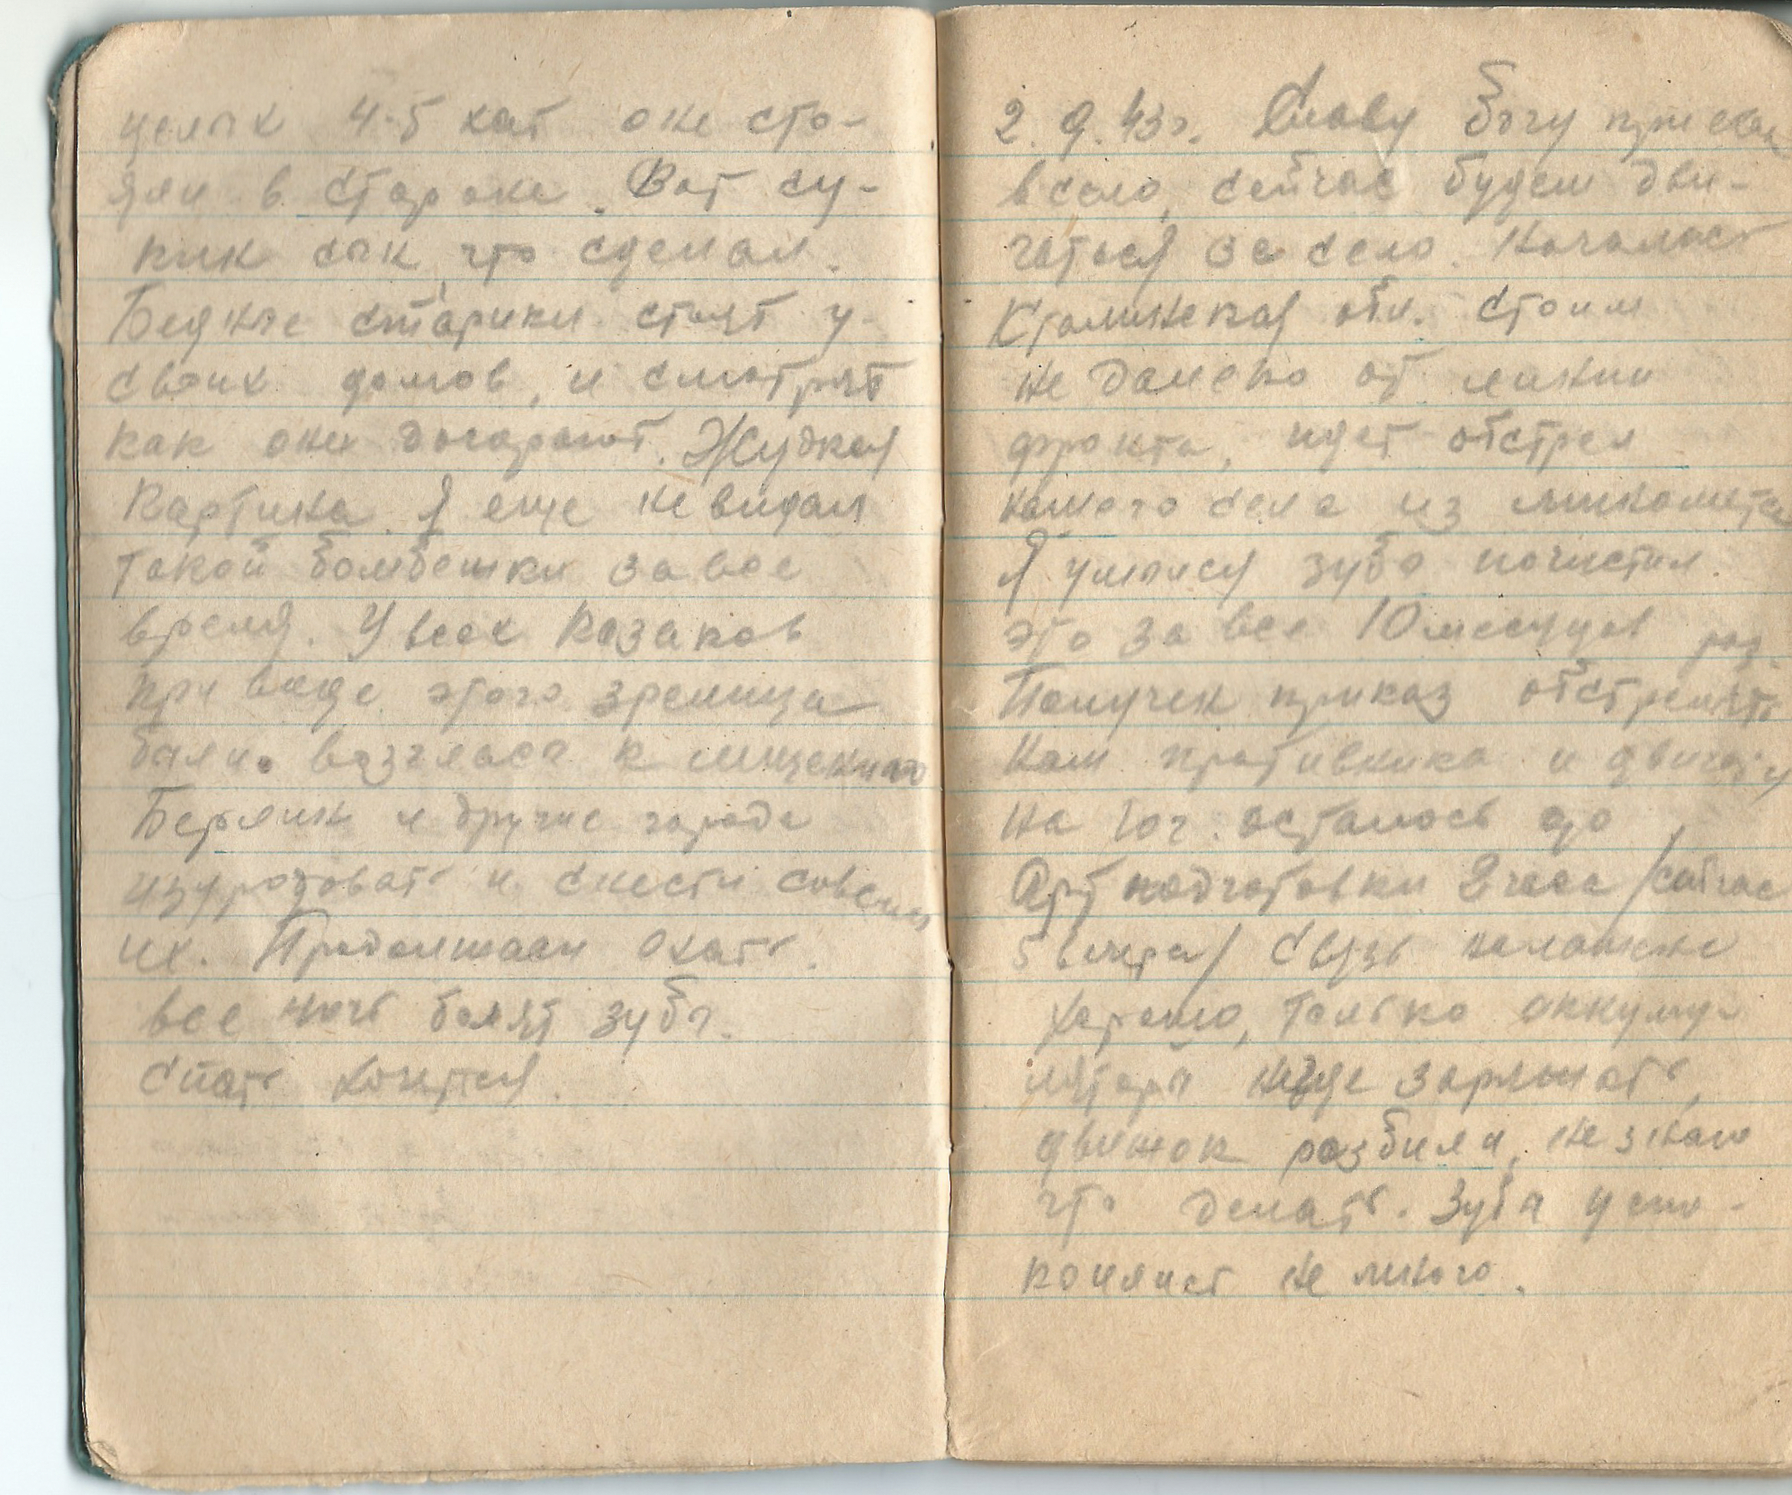 целых 4-5 хат они сто-
яли в стороне. Вот су-
кин сын, что сделал.
Бедные старики стоят у
своих домов, и смотрят
как они догарают. Жудкая
картина. Я еще не видал
такой бомбешки за все
время. У всех казаков
при виде этого зрелища
были возгласы к мщению
Берлин и другие города
изуродовать и снести совсем
их. Продолжаем ехать.
все ночь болят зубы.
Спать хочется.
2.9.43г. Славу богу приехали
в село, сейчас будем дви-
гаться за село. Началась
Сталинская обл. Стоим
не далеко от линии
фронта, идет обстрел
нашего села из минометов
Я умылся зубы почистил.
это за все 10 месяцев раз.
Получен приказ обстрелять
нам противника и двигаться
на юг. осталось до
Арт подготовки 2 часа /сейчас
5 вечера/ Связь налажена
хорошо, только аккуму-
ляторы негде заряжать,
движок разбили, не знаю
что делать. Зубы успо-
коились не много.